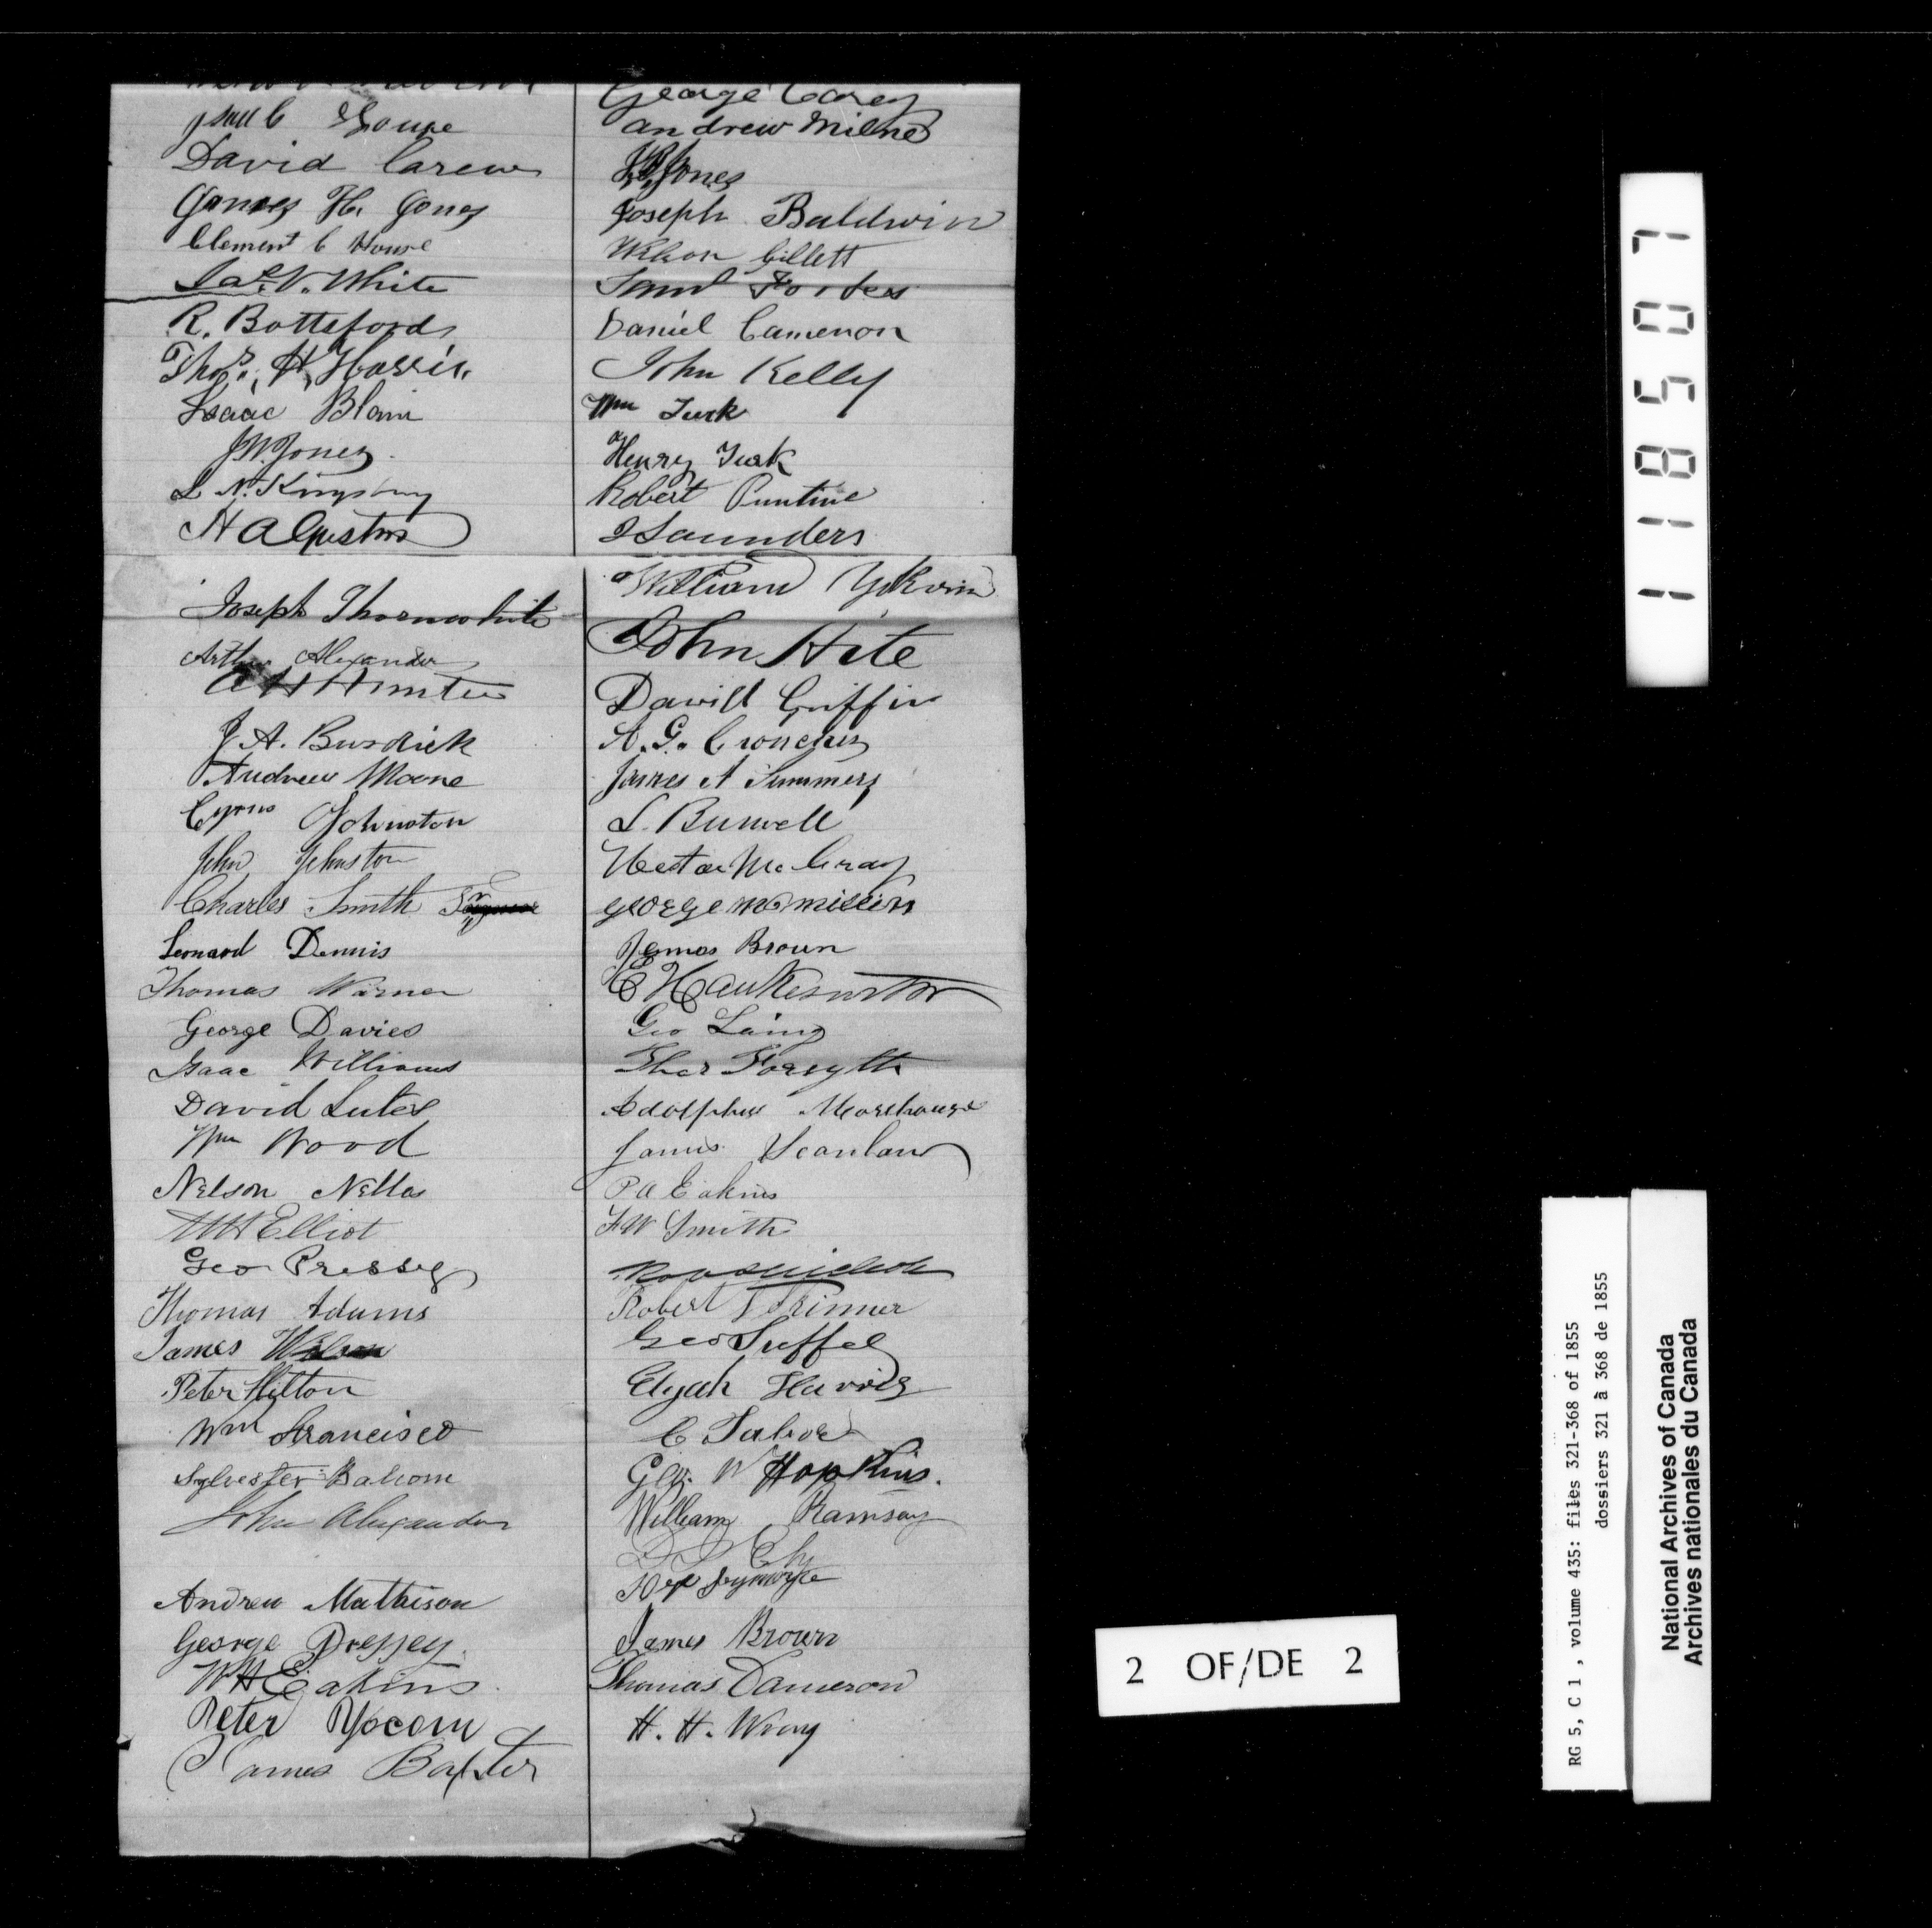 David Carew
James H. Jones
Clement C House
Jas. N. White
R. Bottsford
Thos. H. Harris
Isaac Blain
J.W. Jones
L N. Kingsbury
Joseph Thornwhite
Arthur Alexander
A H Hunter
J. A. Burdick
Andrew Moone
Cyrus Johnston
John Johnston
Charles Smith
Leonard Dennis
Thomas Warner
George Davies
Isaac Williams
David Lutes
Wm Wood
Nelson Nelles
Elliot
Geo Pressey
Thomas Adams
James Wilson
Peter Hilton
Wm Francisco
Sylvester Balcom
John Alexander
Andrew Mathison
George Pressey
W H Eakins
Peter Yocom
James Baxter
George Carey
Andrew Milne
Jones
Joseph Baldwin
Wilson Gillett
Saml Forbes
Daniel Cameron
John Kelly
Wm Turk
Henry Turk
Robert Puntine
J Saunders
William
John Hite
David Griffin
A. G.
James A Summers
L. Burwell
Hector McCray
George McMillin
James Brown
E Hawkesworth
Geo Laing
Thos Forsyth
Adolphus Morehouse
James Scanlan
P A Eakins
F W Smith
Robert T Skinner
Geo Suffel
Elijah Harris
C Tabor
Geo. W Hopkins.
William Ramsay
James Brown
Thomas Cameron
H. H. Wray
118507
2 OF/DE 2
RG 5, C 1 , volume 435: files 321-368 of 1855
dossiers 321 à 368 de 1855
National Archives of Canada
Archives nationales du Canada